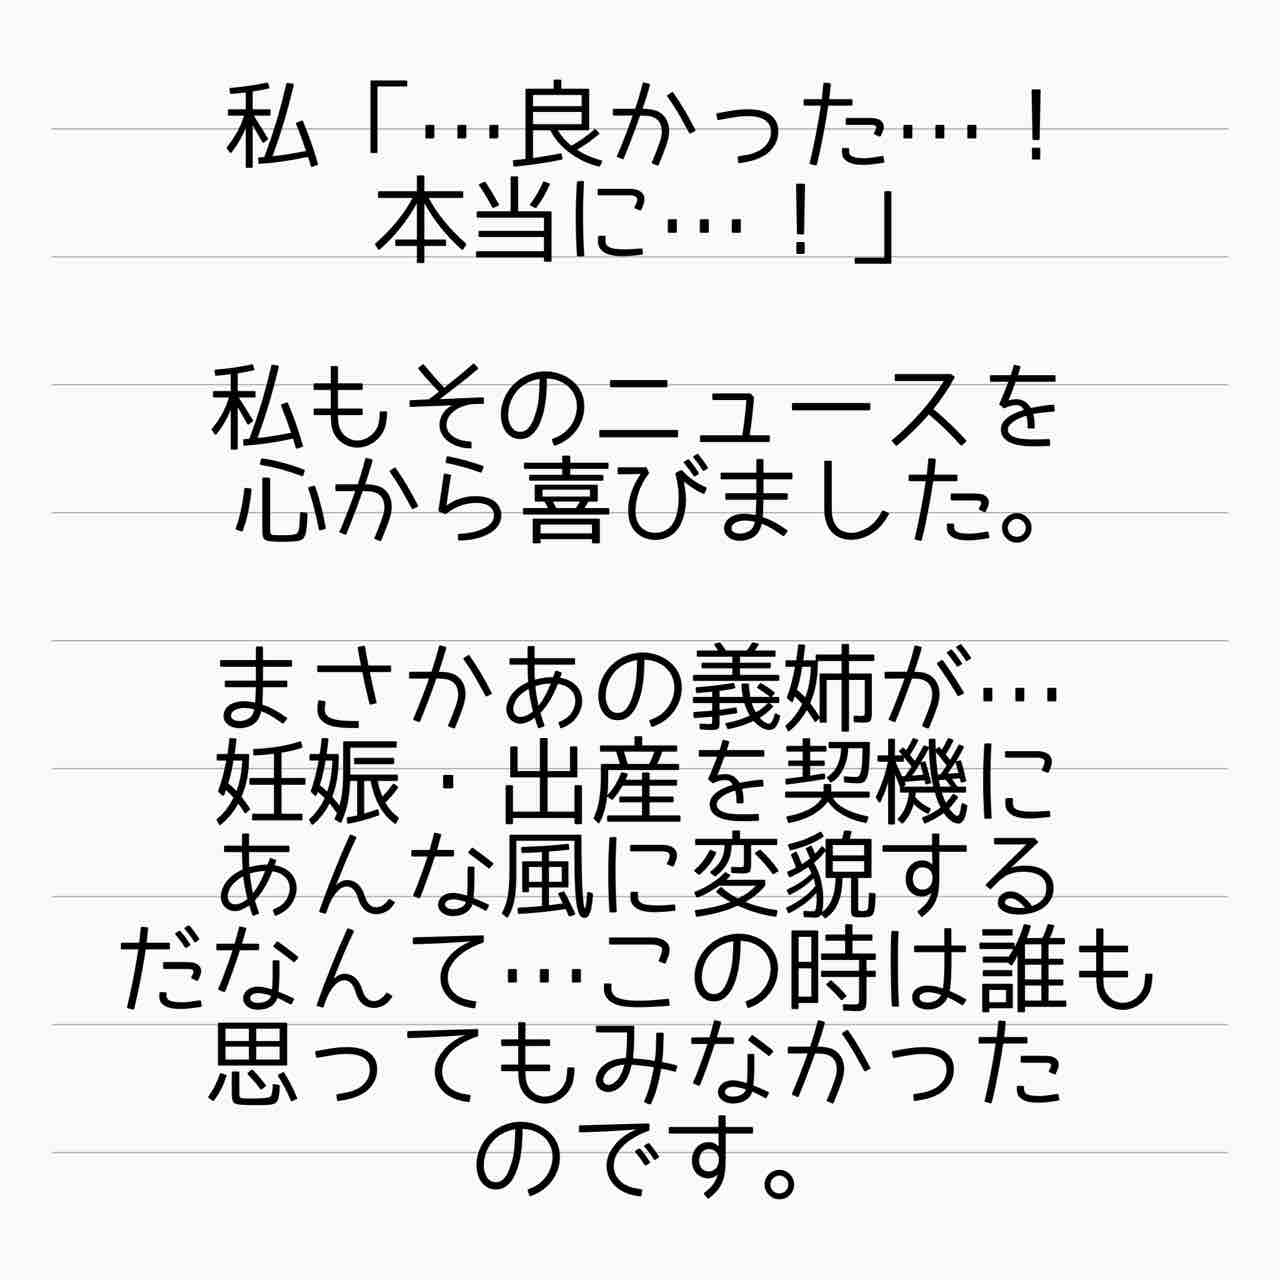 私「…良かった…！
本当に…！」
私もそのニュースを
心から喜びました。
まさかあの義姉が…
妊娠・出産を契機に
あんな風に変貌する
だなんて…この時は誰も
思ってもみなかった
のです。